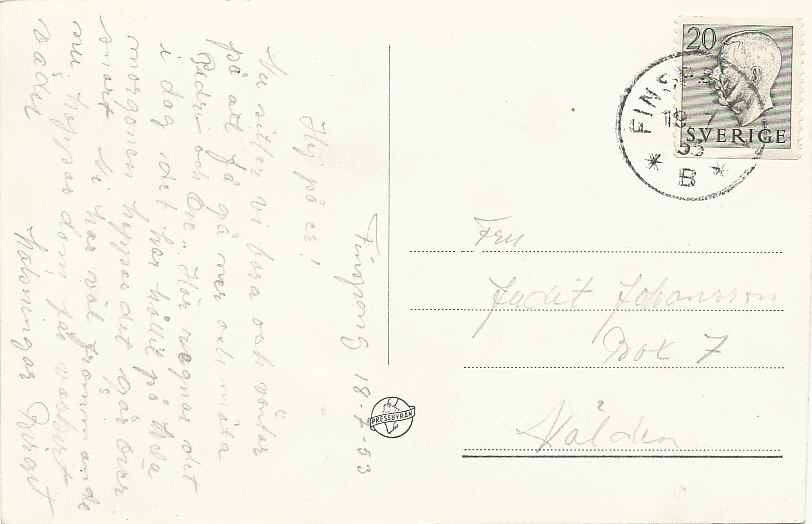 Finspong 18-7-53
Hej på er!
Nu sitter vi bara och väntar
på att få gå ner och möta
och Här regnar det
i dag, det har hållit på hela
morgonen hoppas det går över
snart Vi har väl främmande
nu, hoppas dom får vackert
väder
hälsningar Birgit
20
SVERIGE
FINSPÅNG
19 7
53
* B *
PRESSBYRÅN
Fru
Judit Johansson
Box 7
Nälden